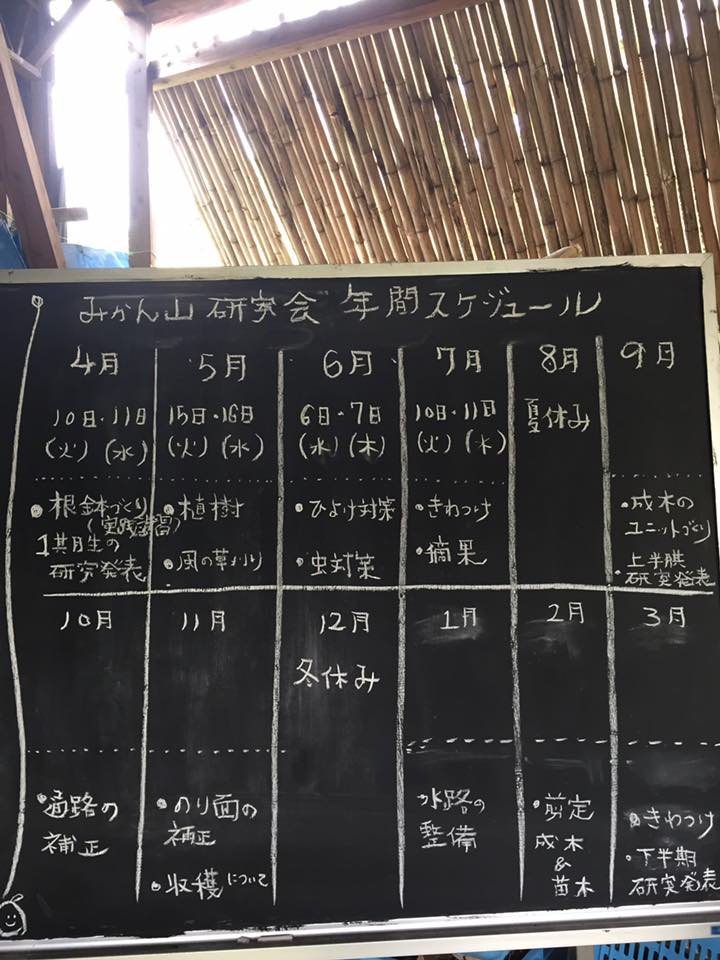 みかん山研究会 年間スケジュール
4月
10日・11日
(火) (水)
・根鉢づくり
(実践講習)
1期生の
研究発表
5月
15日・16日
(火) (水)
・植樹
・風の草刈り
6月
6日・7日
(水) (木)
・ひよけ対策
・虫対策
7月
10日・11日
(火) (水)
・きわつけ
・摘果
8月
夏休み
9月
・成木の
ユニットづくり
・上半期
研究発表
10月
・通路の
補正
11月
・のり面の
補正
・収穫について
12月
冬休み
1月
・水路の
整備
2月
・剪定
成木
&
苗木
3月
・きわつけ
・下半期
研究発表